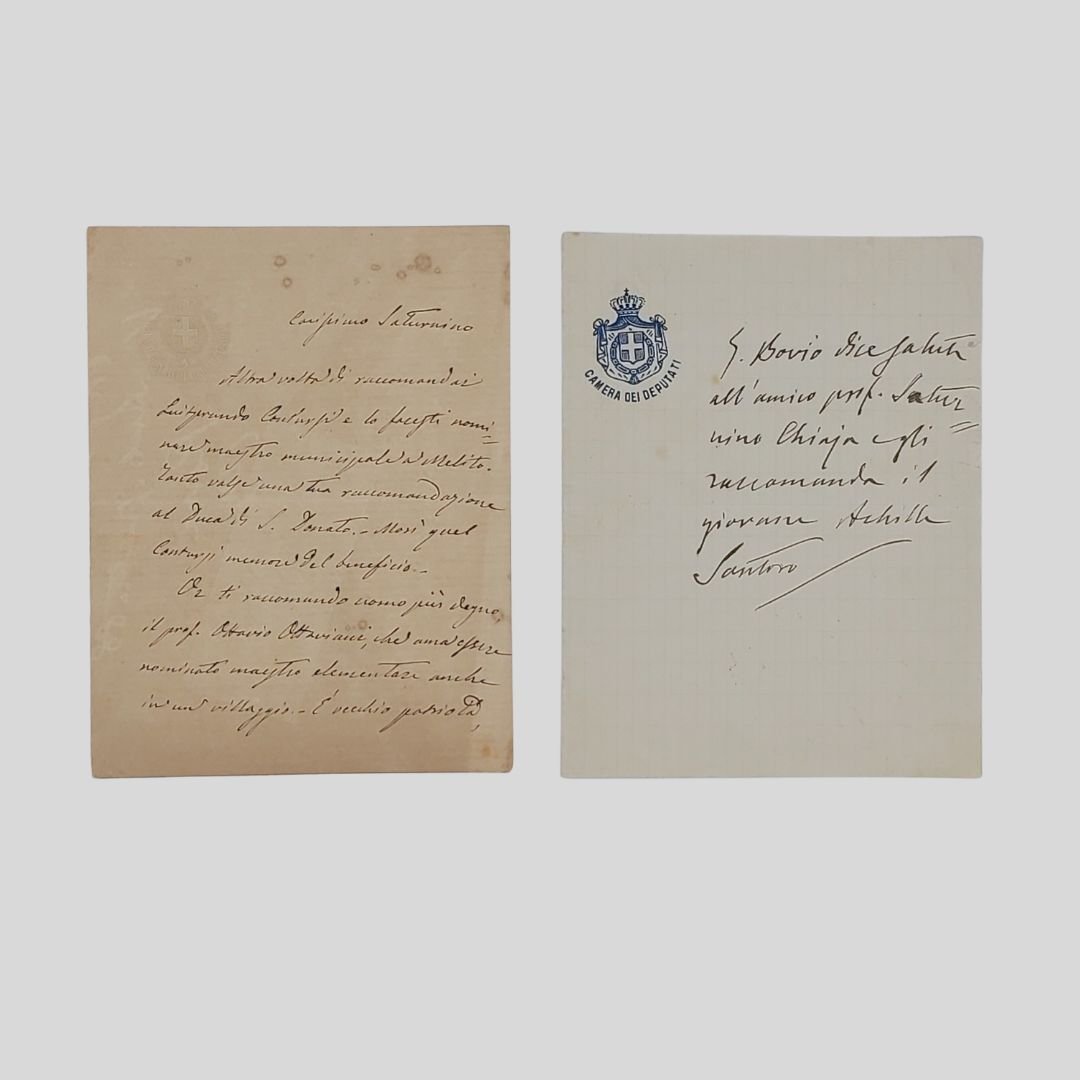 Carissimo Saturnino
Altra volta ti raccomandai
Luitprando Contursi e lo facesti nomi=
nare maestro municipale a Melito.
Tanto valse una tua raccomandazione
al Duca di S. Donato. – Morì quel
Contursi memore del beneficio. –
Or ti raccomando uomo più degno,
il prof. Ottavio Ottaviani, che ama essere
nominato maestro elementare anche
in un villaggio. – È vecchio patriota,
CAMERA DEI DEPUTATI
G. Bovio dice salute
all'amico prof. Satur=
nino Chiaja e gli
raccomanda il
giovane Achille
Santoro